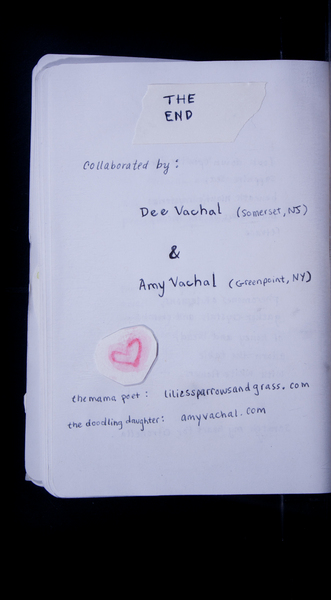 THE
END
Collaborated by:
Dee Vachal (Somerset, NJ)
&
Amy Vachal (Greenpoint, NY)
the mama poet: liliessparrowsandgrass.com
the doodling daughter: amyvachal.com